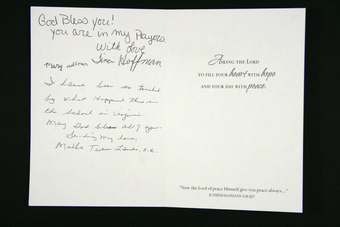 God Bless you!
you are in my Prayers
With Love
Tina Hoffman
Mary
I have been so touched
by what happened this on
the school in Virginia
May God bless all of you.
Sending my love
ASKING THE LORD
TO FILL YOUR heart WITH hope
AND YOUR DAY WITH peace.
"Now the lord of peace Himself give you peace always..."
II THESSALONIANS 3:16 KJV